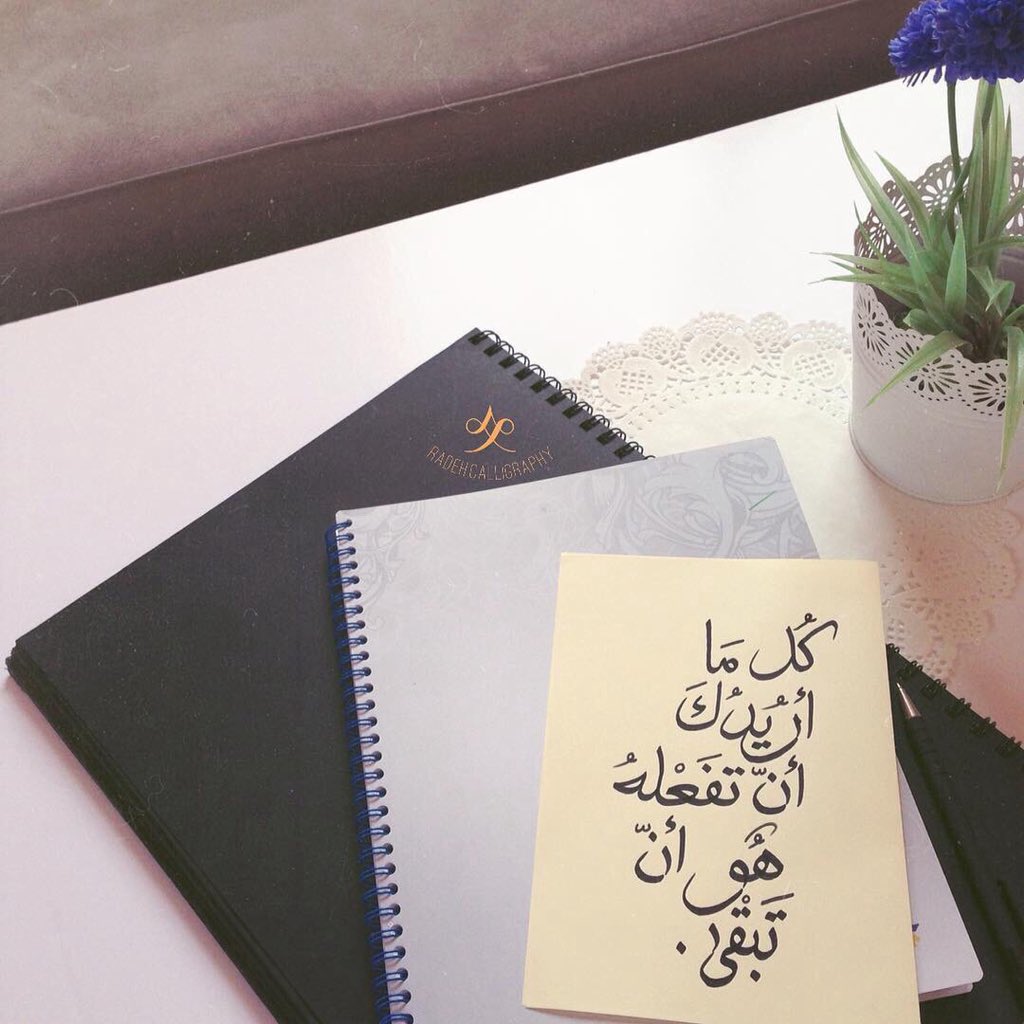 RADEH.CALLIGRAPHY
كُل مَا
أريُدُكَ
أنّ تفَعْلهُ
هُو أنّ
تَبْقىٰ.